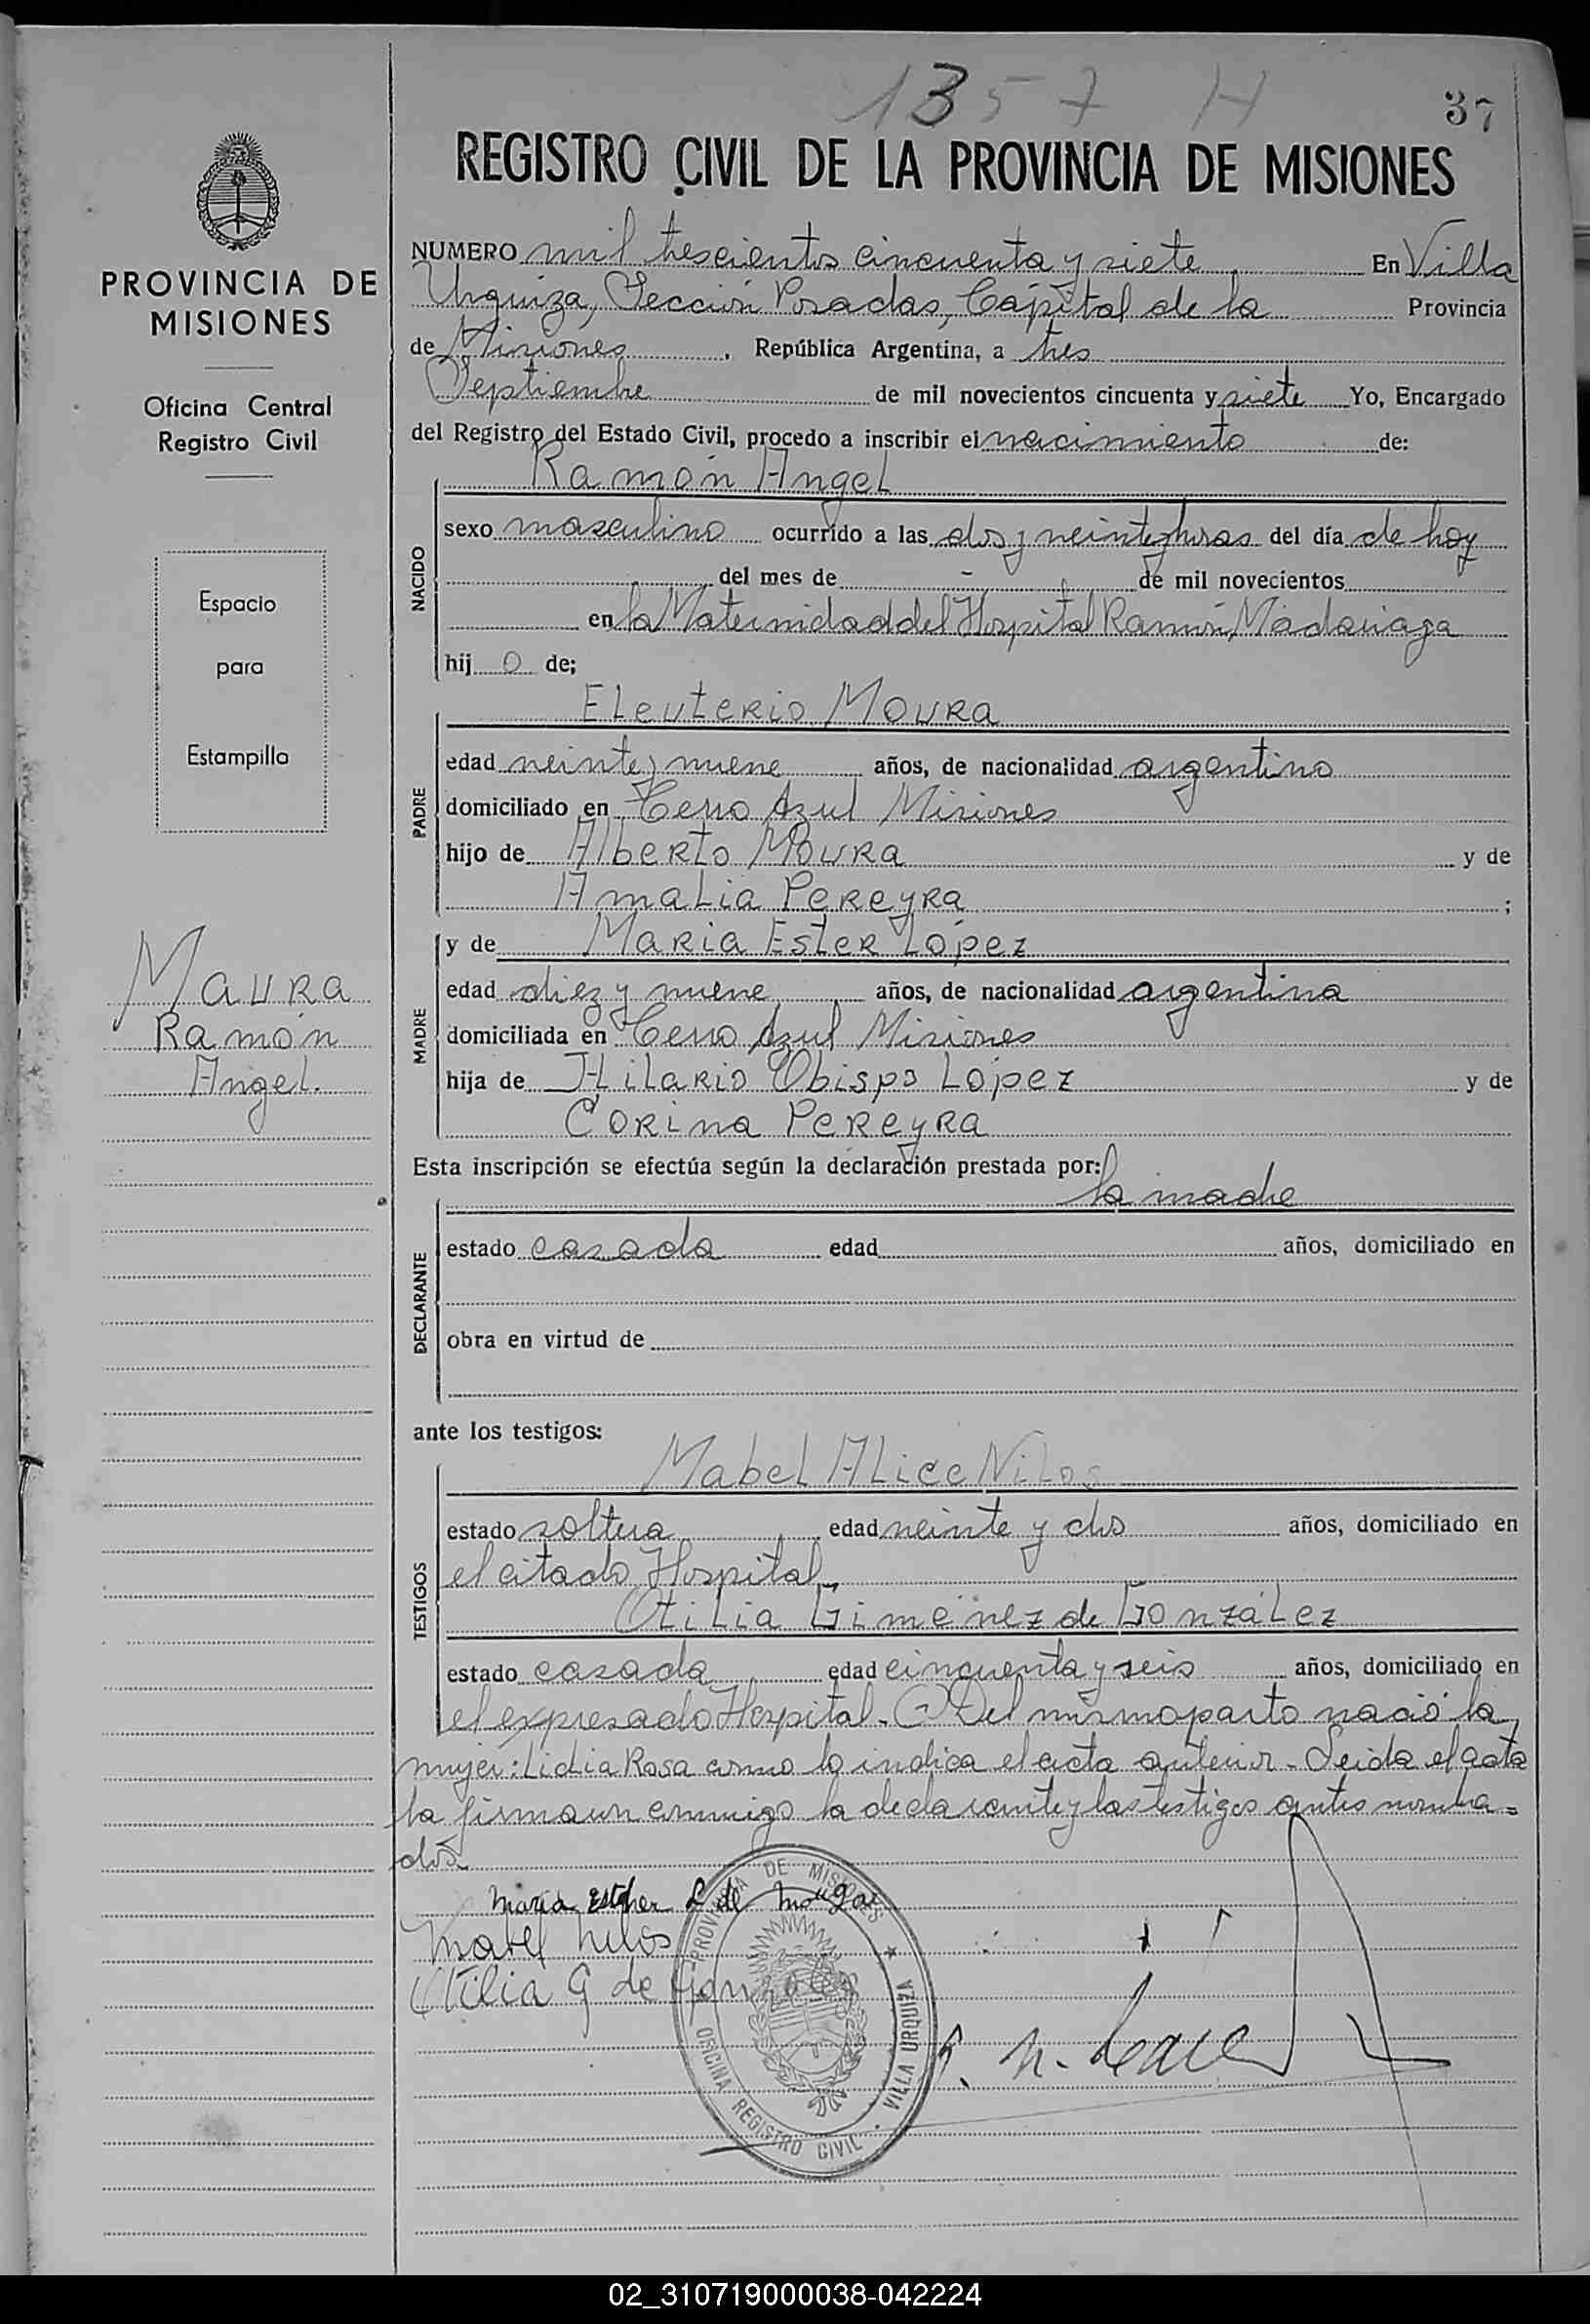 1357 H
37
REGISTRO CIVIL DE LA PROVINCIA DE MISIONES
PROVINCIA DE
MISIONES
Oficina Central
Registro Civil
Espacio
para
Estampilla
Maura
Ramón
Angel.
NUMERO mil trescientos cincuenta y siete, En Villa
Urquiza, Sección Posadas, Capital de la Provincia
de Misiones, República Argentina, a tres
Septiembre de mil novecientos cincuenta y siete Yo, Encargado
del Registro del Estado Civil, procedo a inscribir el nacimiento de:
Ramón Angel
NACIDO
sexo masculino ocurrido a las dos y veinte horas del día de hoy
del mes de - de mil novecientos
en la Maternidad del Hospital Ramón Madariaga
hij o de;
Eleuterio Moura
PADRE
edad veinte y nueve años, de nacionalidad argentino
domiciliado en Cerro Azul Misiones
hijo de Alberto Moura y de
Amalia Pereyra ;
y de Maria Ester López
MADRE
edad diez y nueve años, de nacionalidad argentina
domiciliada en Cerro Azul Misiones
hija de Hilario Obispo López y de
Corina Pereyra
Esta inscripción se efectúa según la declaración prestada por:
la madre
DECLARANTE
estado casada edad años, domiciliado en
obra en virtud de
ante los testigos:
Mabel Alice Nilos
TESTIGOS
estado soltera edad veinte y dos años, domiciliado en
el citado Hospital,
Otilia Giménez de González
estado casada edad cincuenta y seis años, domiciliado en
el expresado Hospital. Del mismo parto nació la
mujer: Lidia Rosa como lo indica el acta anterior. Leida el acta
la firmaron conmigo la declarante y las testigos antes nombra=
dos.
Maria Esther L de Moura
Mabel Nilos
Otilia G de Gonzalez
PROVINCIA DE MISIONES
OFICINA REGISTRO CIVIL · VILLA URQUIZA
02_310719000038-042224